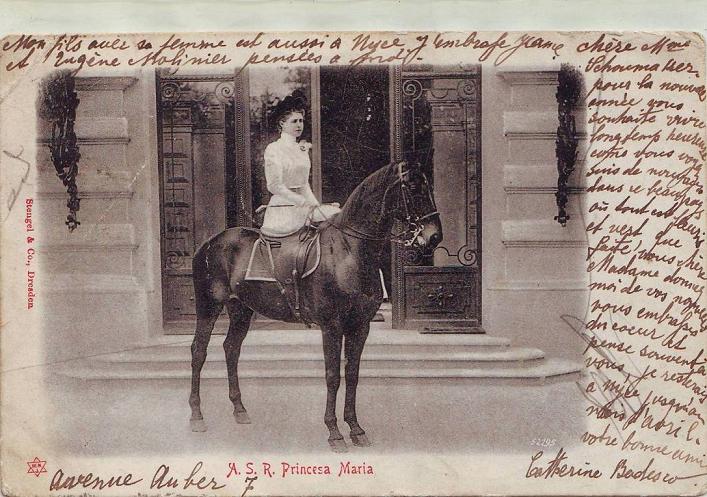 Mon fils avec sa femme est aussi à Nyce j'embrasse Jeanne
& Eugène Molinier pensées à
chère Mme
pour la nouvelle
année vous
souhaite vivre
longtemps heureuse
dans ce beau pays
où tout est fleuri
et vert que
Madame donnez
moi de vos nouvelles
vous embrasse
du coeur et
pense souvent à
vous, je resterai
à Nyce jusqu'au
mois d'avril.
votre bonne amie
Catherine Badesco.
Stengel & Co., Dresden
52295
A. S. R. Principesa Maria
Avenue Auber 7